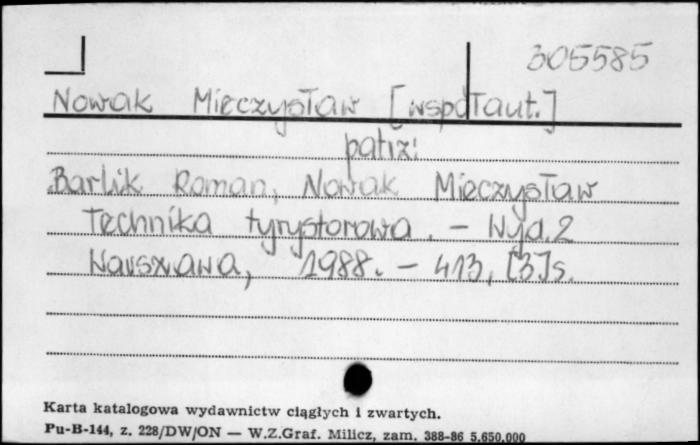 305585
Nowak Mieczysław [współaut.]
patrz:
Barlik Roman, Nowak Mieczysław
Technika tyrystorowa. - Wyd. 2
Warszawa, 1988. - 413, [3] s.
Karta katalogowa wydawnictw ciągłych i zwartych.
Pu-B-144, z. 228/DW/ON — W.Z.Graf. Milicz, zam. 388-86 5.650.000